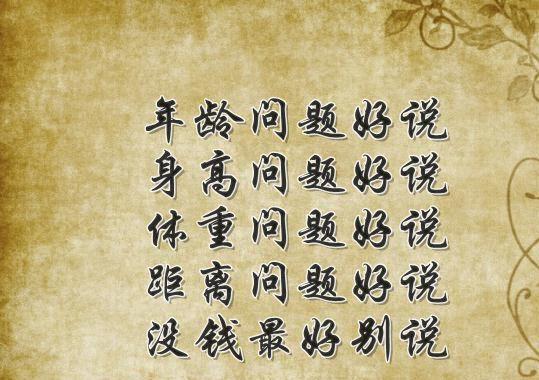 年龄问题好说
身高问题好说
体重问题好说
距离问题好说
没钱最好别说